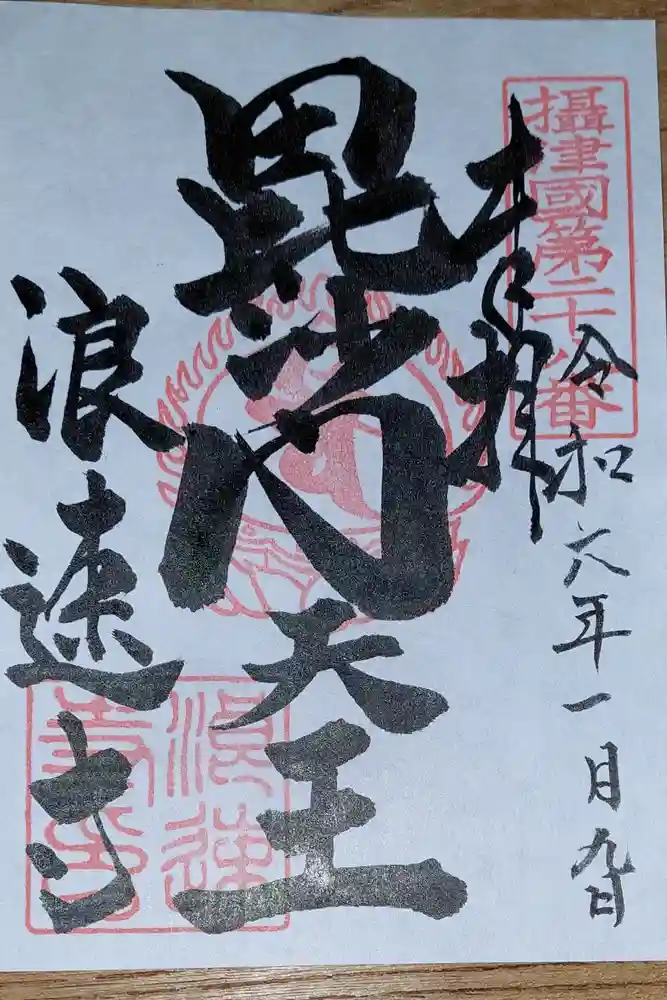 攝津國第二十八番
令和六年一月九日
奉拝
毘沙門天王
浪速寺
浪速
寺印